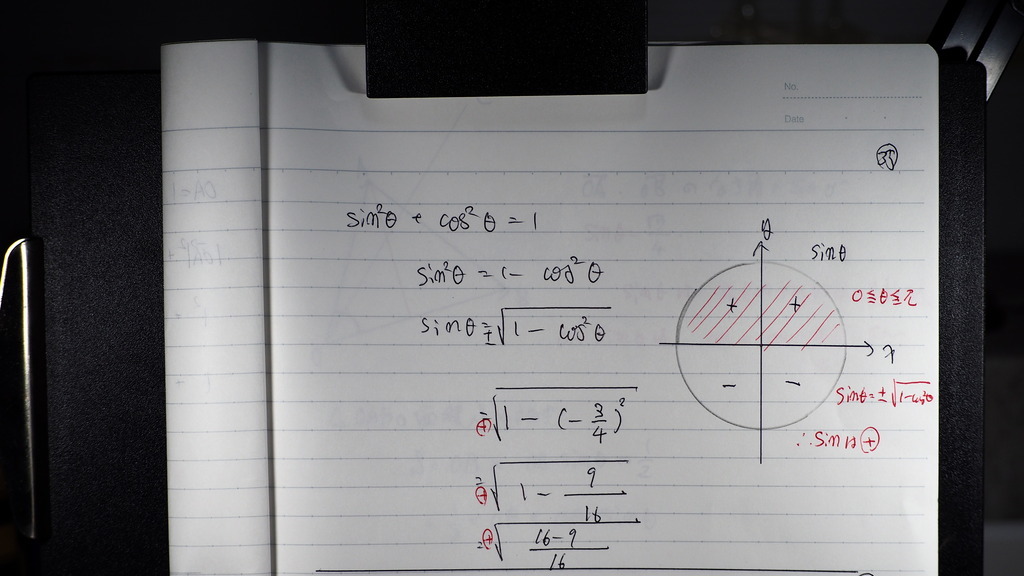 No.
Date
35
sin²θ + cos²θ = 1
sin²θ = 1 - cos²θ
sinθ = ±√(1 - cos²θ)
= ⊕√(1 - (-3/4)²)
= ⊕√(1 - 9/16)
= ⊕√((16-9)/16)
sinθ
+ +
- -
x
0 ≦ θ ≦ π
sinθ = ±√(1-cos²θ)
∴ sin は ⊕